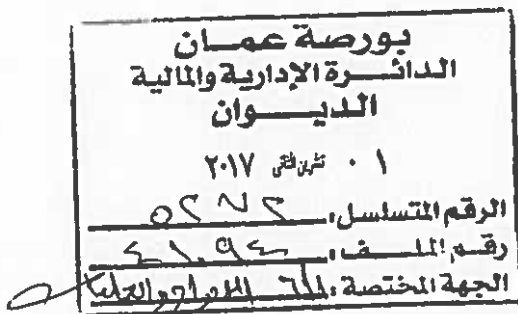 بورصة عمان
الدائرة الإدارية والمالية
الديوان
٠١ تشرين الثاني ٢٠١٧
الرقم المتسلسل:
رقم الملف: ٤١٠٩٤
الجهة المختصة: